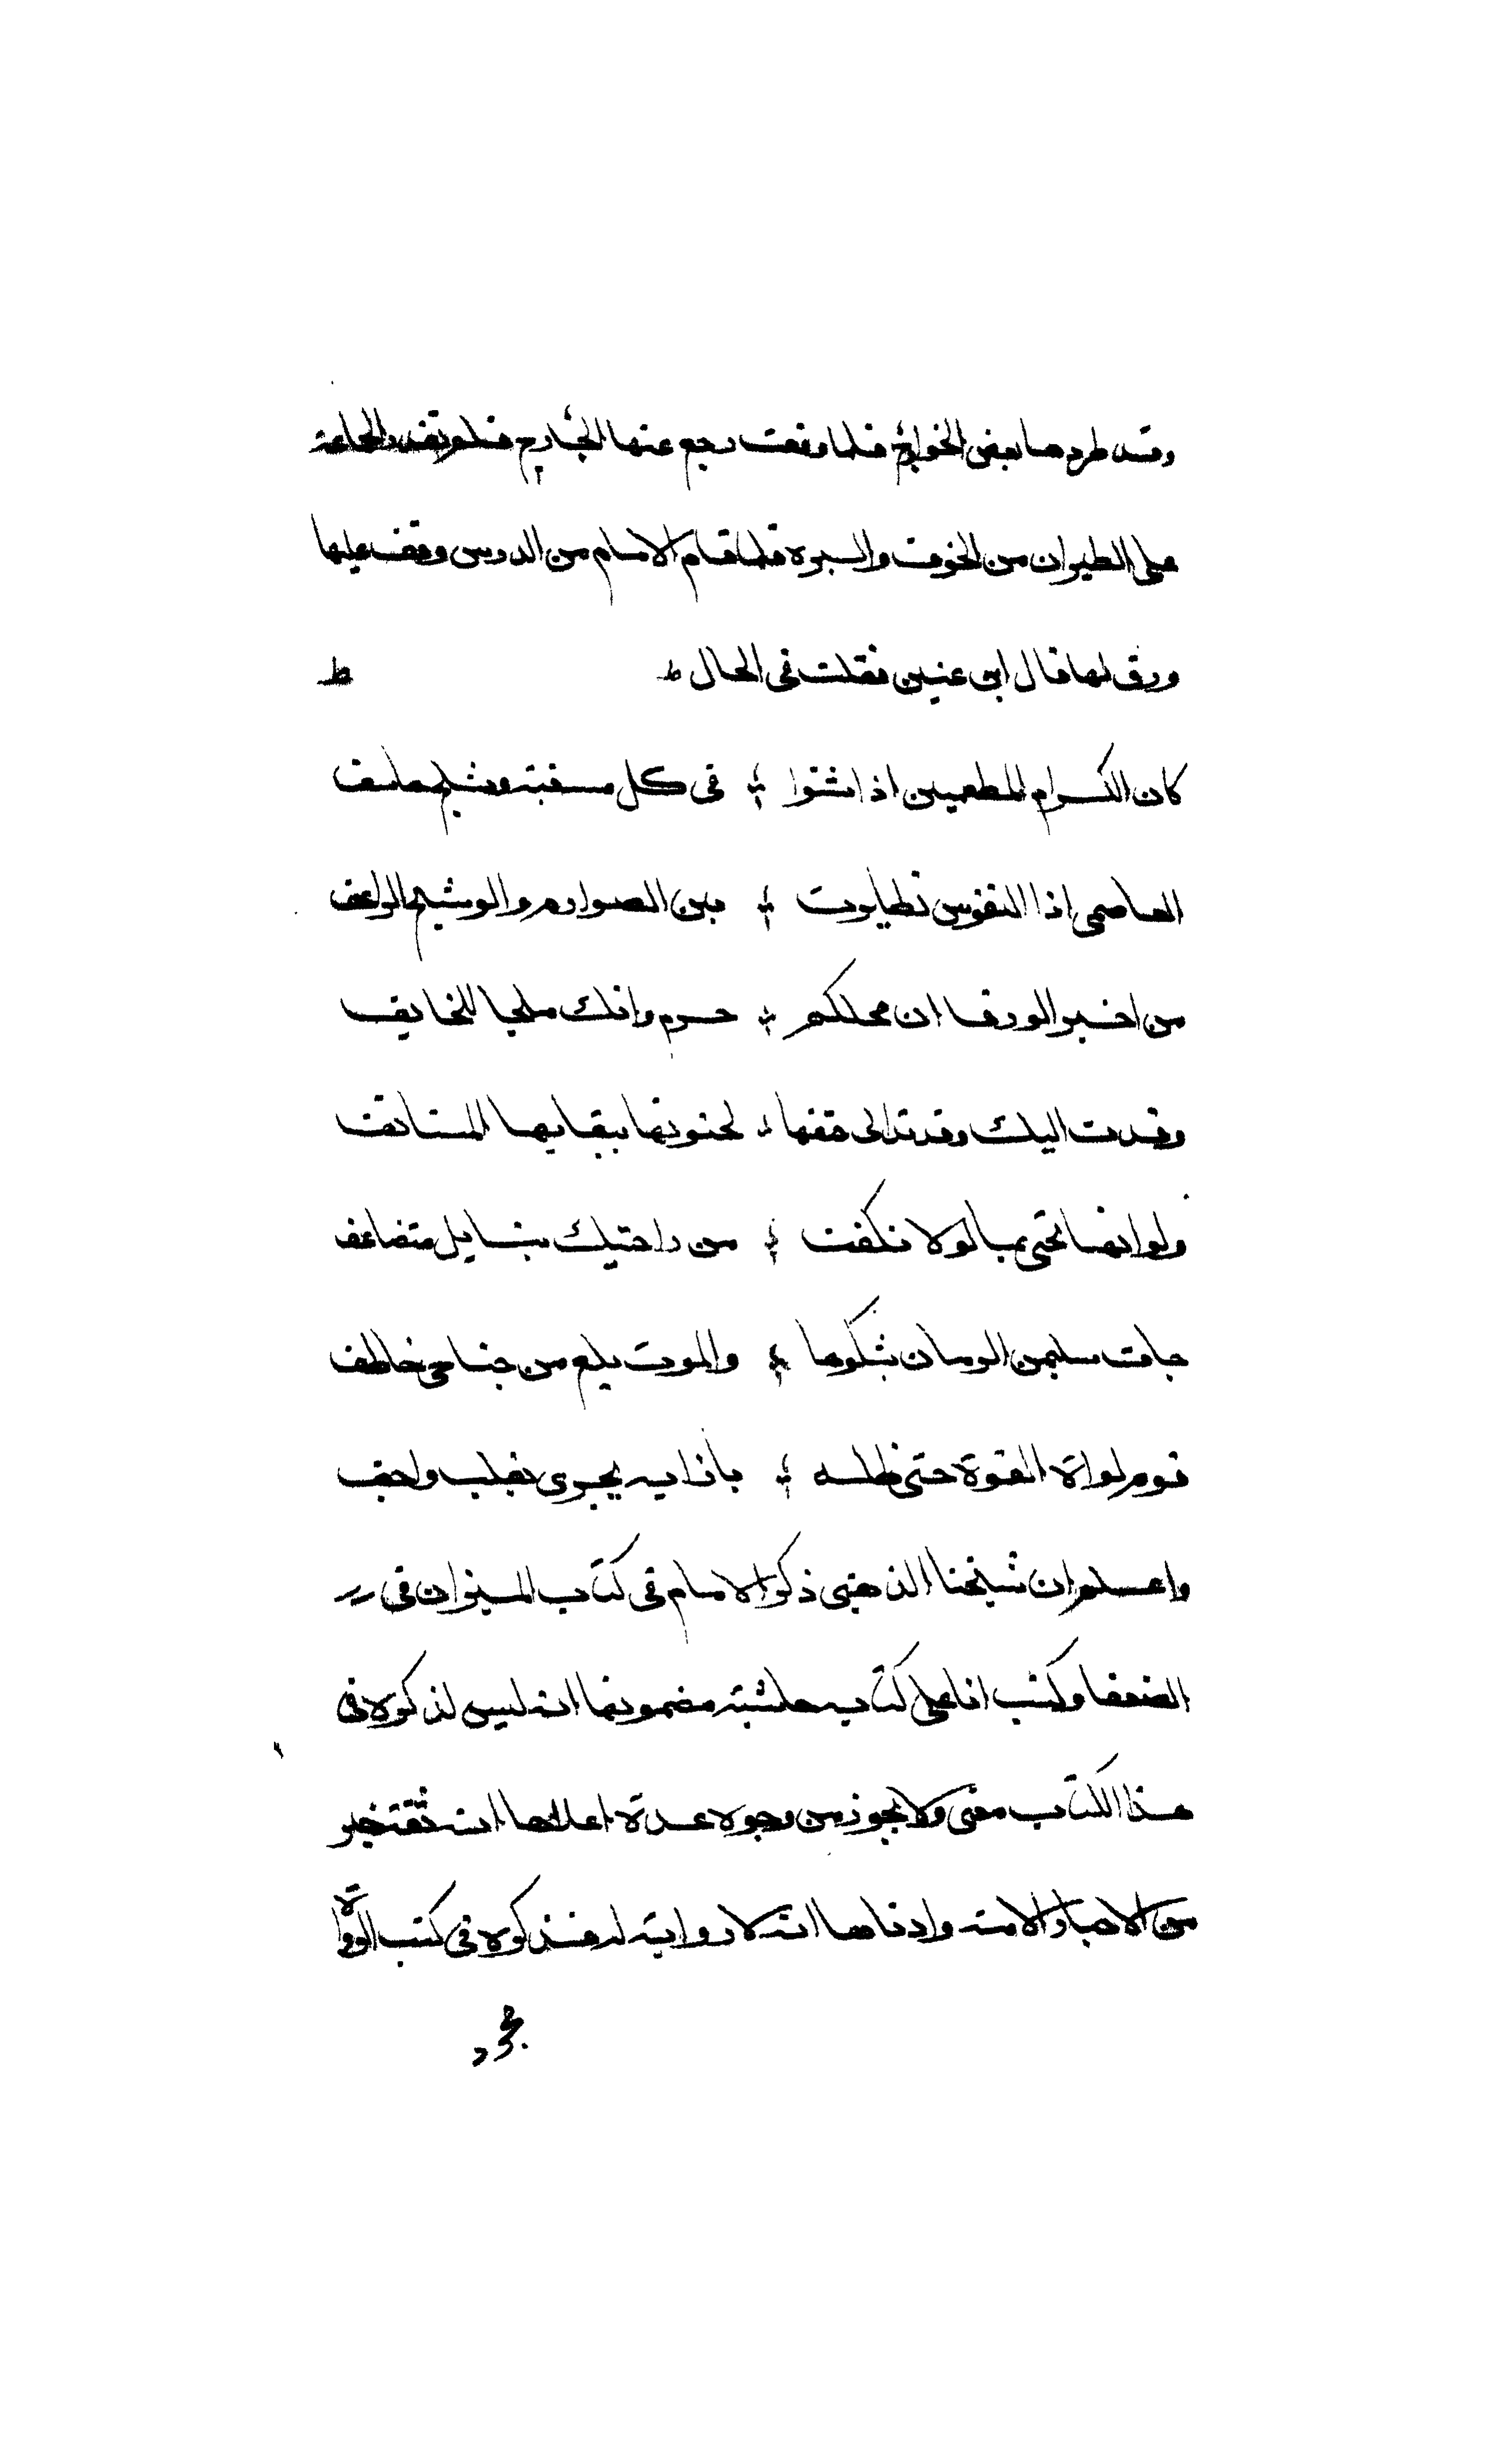 وقد طردها بعض الخوارج فلما وقعت رجع عنها الجارح فلم تقدر الحمامة
على الطيران من الخوف والبرد فلما قام الامام من الدرس وقف عليها
ورق لها قال ابن عنين فقلت في الحال
كان الكرام المطعمين اذا شتوا في كل مسغبة وثلج خاسف
العاصمي اذا النفوس تطايرت بين الصوارم والوشيج الراعف
من اخبر الورقا ان محلكم حرم وانك ملجا للخايف
وفدت اليك وقد تدانى حتفها ببقايها المستانف
ولوانها تحبى بمال لا نكفت من راحتيك بنايل متضاعف
جات سليمن الزمان بشكوها والموت يلمع من جناحي خاطف
قوم لواه القوة حتى ظله بازايه يجري بقلب واجف
واعلم ان شيخنا الذهبي ذكر الامام في كتاب الميزان في
الضعفا وكتب انا على كتابه حاشية مضمونها انه ليس لذكره في
هذا الكتاب معنى ولا يجوز من وجوه عدة اعلاها انه ثقة خير
من الاحبار الامة وادناها انه لا رواية له فذكره في كتب الرواة